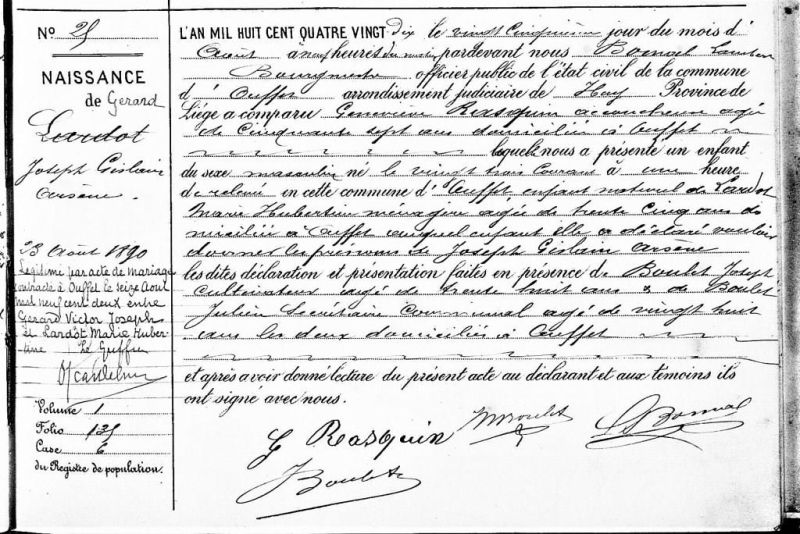 N° 25
NAISSANCE
de Gerard
Lardot
Joseph Gislain
Arsène.
23 Août 1890
Légitimé par acte de mariage
contracté à Ouffet le seize Août
mil neuf cent deux entre
Gerard Victor Joseph
et Lardot Marie Hubertine
Le Greffier
Volume 1
Folio 125
Case 6
du Registre de population.
L'AN MIL HUIT CENT QUATRE VINGT dix le vingt cinquième jour du mois d'
Août à neuf heures du matin pardevant nous Bonnal Lambert
Bourgmestre officier public de l'état civil de la commune
d' Ouffet arrondissement judiciaire de Huy Province de
Liége a comparu Rasquin accoucheuse agée
de cinquante sept ans domiciliée à Ouffet
laquelle nous a présenté un enfant
du sexe masculin né le vingt trois courant à une heure
de relevé en cette commune d' Ouffet enfant naturel de Lardot
Marie Hubertine ménagère agée de trente cinq ans do
miciliée à Ouffet auquel enfant elle a déclaré vouloir
donner les prénoms de Joseph Gislain Arsène
les dites déclaration et présentation faites en présence de Boulet Joseph
Cultivateur agé de trente huit ans & de Boulet
Julien Secrétaire communal agé de vingt huit
ans les deux domiciliés à Ouffet
et après avoir donné lecture du présent acte au déclarant et aux témoins ils
ont signé avec nous.
G Rasquin
Boulet
L Bonnal
J Boulet